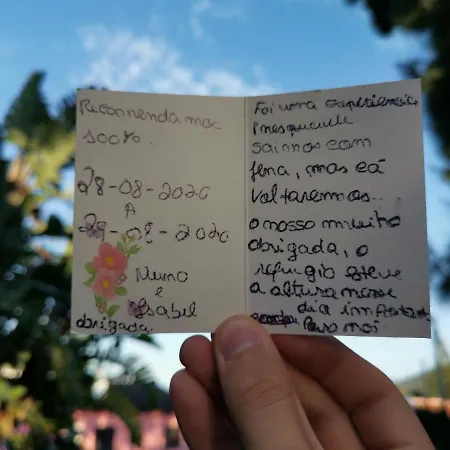 Recomendamos
100%.
28-08-2020
A
29-08-2020
Nuno
e
Isabil
obrigada
Foi uma experiencia
saimos com
pena, mas cá
voltaremos.
o nosso muito
obrigada, o
refugio esteve
a altura nesse
dia importa
Para nói